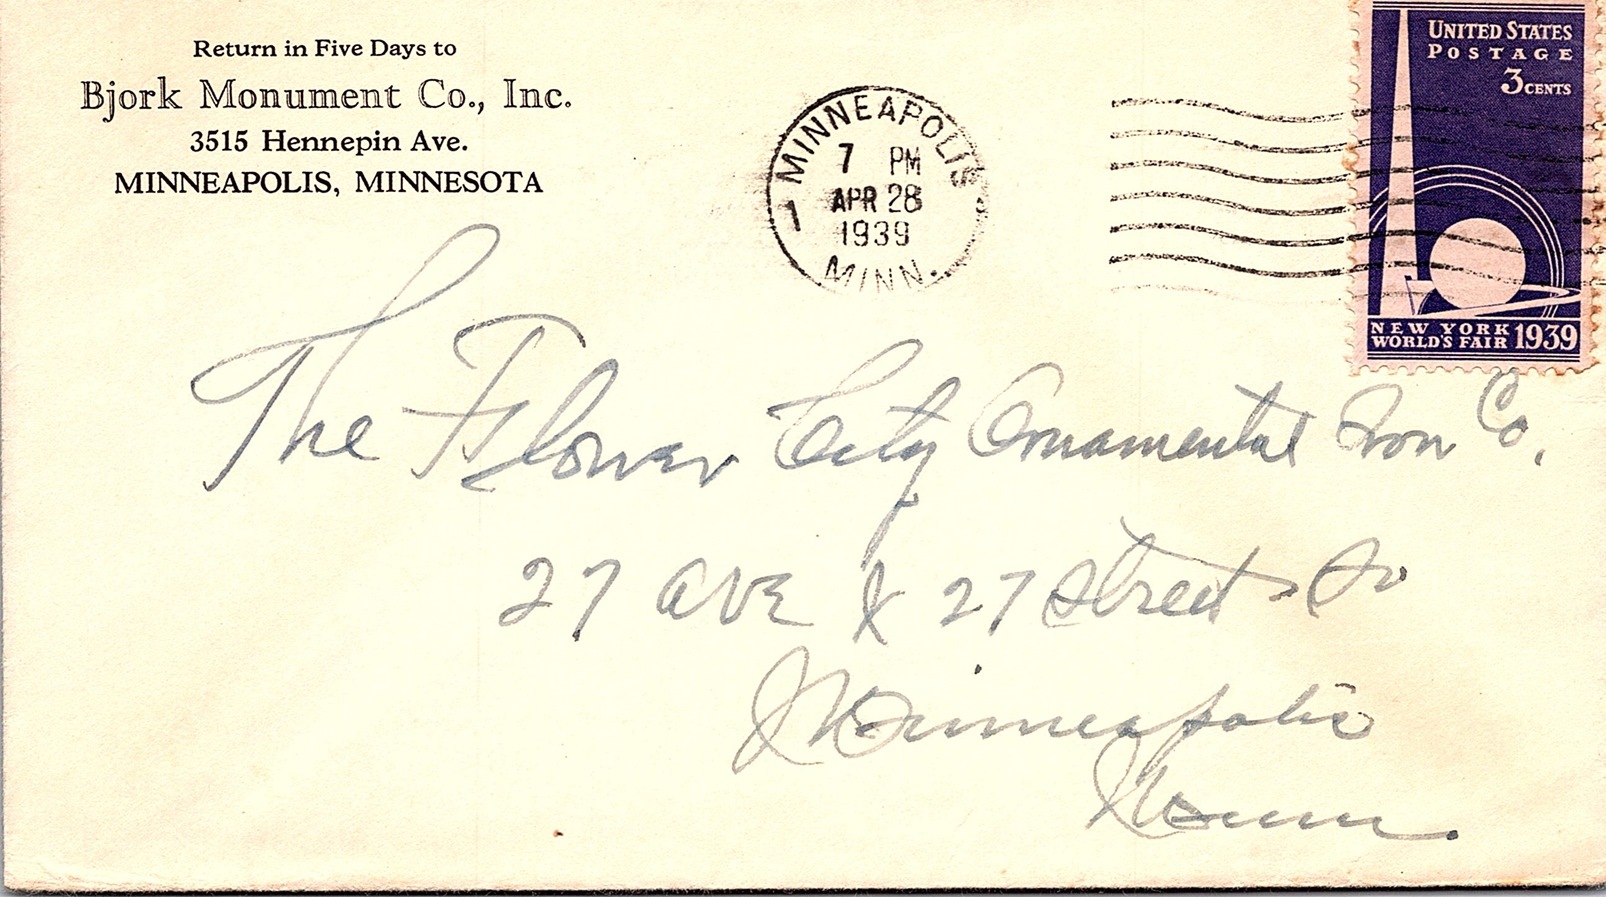 Return in Five Days to
Bjork Monument Co., Inc.
3515 Hennepin Ave.
MINNEAPOLIS, MINNESOTA
MINNEAPOLIS 1
7 PM
APR 28
1939
MINN.
UNITED STATES
POSTAGE
3 CENTS
NEW YORK
WORLD'S FAIR 1939
The Flower City Ornamental Iron Co.
27 AVE & 27 Street So
Minneapolis
Minn.